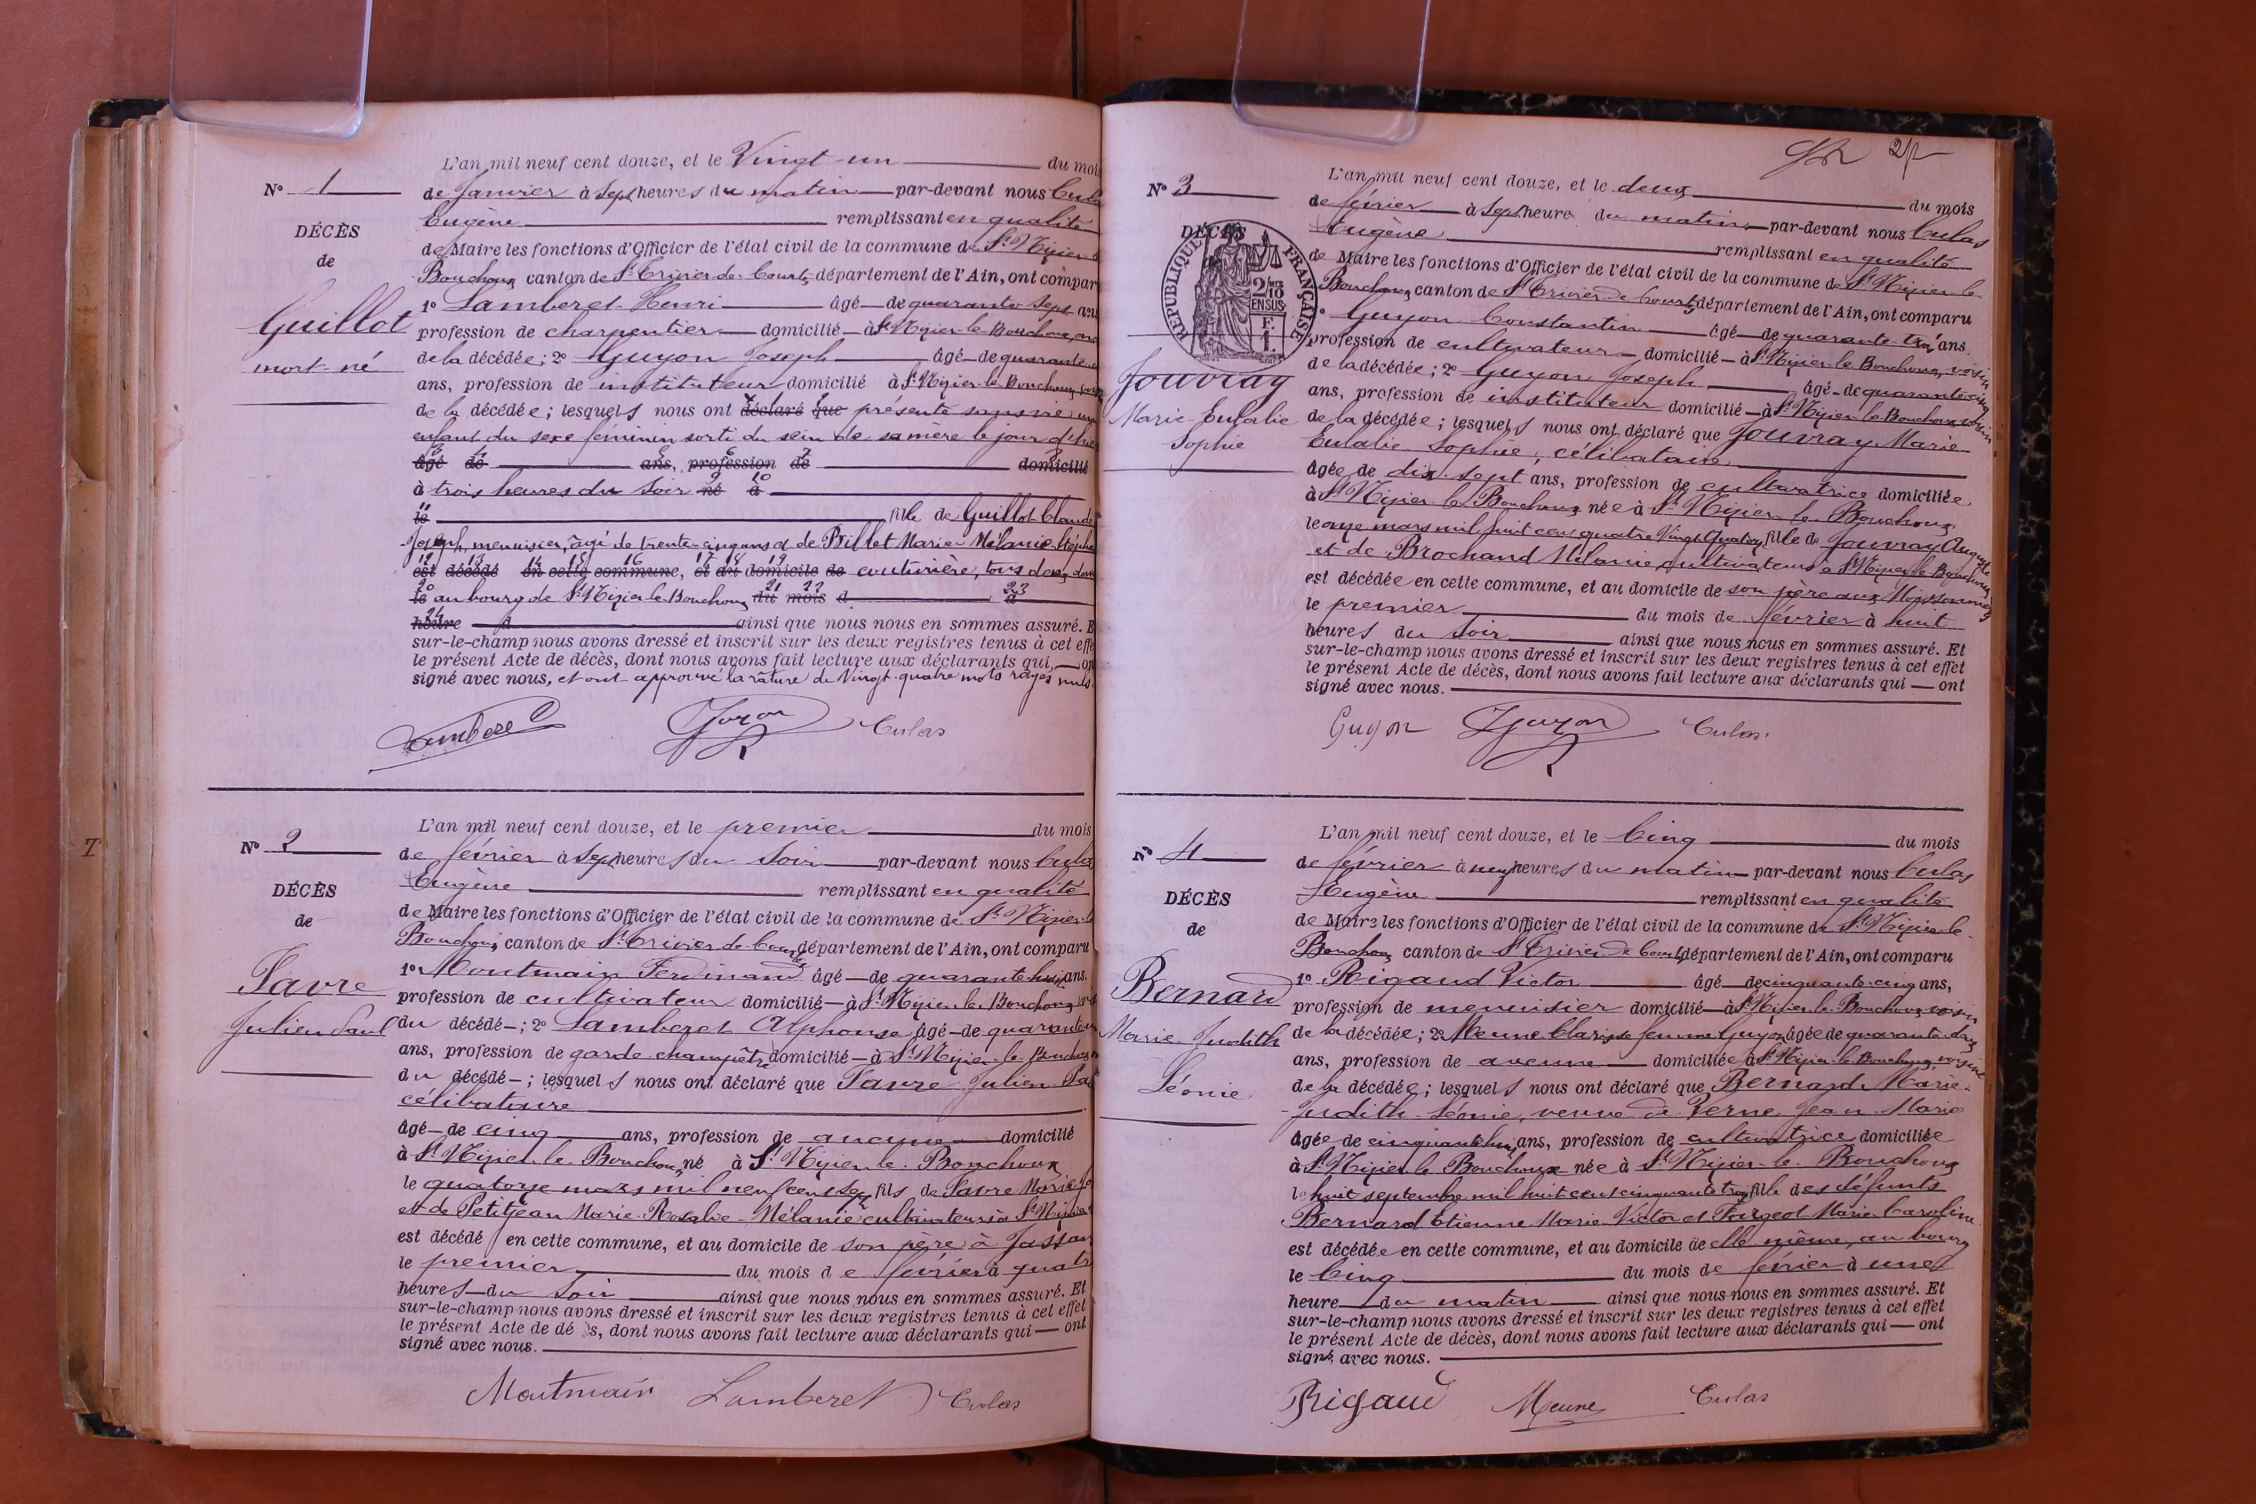 L'an mil neuf cent douze, et le Vingt-un du mois
N° 1
de Janvier à Sept heures du matin par-devant nous Culas
Eugène remplissant en qualité
DÉCÈS
de Maire les fonctions d'Officier de l'état civil de la commune de St Nizier-le
de
Bouchoux canton de St Trivier-de-Courtes, département de l'Ain, ont comparu
1° Lamberet Henri âgé de quarante-sept ans
Guillot
profession de charpentier domicilié à St Nizier-le-Bouchoux,
mort-né
de la décédée; 2° Guyon Joseph âgé de quarante
ans, profession de instituteur domicilié à St Nizier-le-Bouchoux
de la décédée; lesquels nous ont déclaré que présenté sans vie un
enfant du sexe féminin sorti du sein de sa mère le jour d'hier
âgé de ans, profession de domicilié
à trois heures du soir né à
le fille de Guillot Claude
Joseph, menuisier, âgé de trente-cinq ans et de Billet Marie Mélanie
est décédé en cette commune, et au domicile de couturière, tous deux
le au bourg de St Nizier-le-Bouchoux du mois d à
heure d ainsi que nous nous en sommes assuré. Et
sur-le-champ nous avons dressé et inscrit sur les deux registres tenus à cet effet
le présent Acte de décès, dont nous avons fait lecture aux déclarants qui ont
signé avec nous, et ont approuvé la râture de Vingt-quatre mots rayés nuls
Lamberet JGuyon Culas
L'an mil neuf cent douze, et le premier du mois
N° 2
de février à Sept heures du Soir par-devant nous Culas
Eugène remplissant en qualité
DÉCÈS
de Maire les fonctions d'Officier de l'état civil de la commune de St Nizier-le
de
Bouchoux canton de St Trivier-de-Courtes département de l'Ain, ont comparu
1° Montmain Ferdinand âgé de quarante-huit ans.
Favre
profession de cultivateur domicilié à St Nizier-le-Bouchoux
Julien Paul
du décédé; 2° Lamberet Alphonse âgé de quarante
ans, profession de garde champêtre domicilié à St Nizier-le-Bouchoux
du décédé; lesquels nous ont déclaré que Favre Julien Paul
célibataire
âgé de cinq ans, profession de aucune domicilié
à St Nizier-le-Bouchoux né à St Nizier-le-Bouchoux
le quatorze mars mil neuf cent sept fils de Favre Marie
et de Petitjean Marie-Rosalie-Mélanie cultivateurs à St Nizier
est décédé en cette commune, et au domicile de son père à
le premier du mois de février à quatre
heures du soir ainsi que nous nous en sommes assuré. Et
sur-le-champ nous avons dressé et inscrit sur les deux registres tenus à cet effet
le présent Acte de dé s, dont nous avons fait lecture aux déclarants qui ont
signé avec nous.
Montmain Lamberet Culas
2
L'an mil neuf cent douze, et le deux du mois
N° 3
de février à Sept heures du matin par-devant nous Culas
DÉCÈS
Eugène remplissant en qualité
RÉPUBLIQUE FRANÇAISE
2/10 EN SUS
de Maire les fonctions d'Officier de l'état civil de la commune de St Nizier-le
Bouchoux canton de St Trivier-de-Courtes département de l'Ain, ont comparu
1° Guyon Constantin âgé de quarante-trois ans
profession de cultivateur domicilié à St Nizier-le-Bouchoux, voisin
Jouvray
de la décédée; 2° Guyon Joseph âgé de quarante-cinq
Marie-Eulalie
ans, profession de instituteur domicilié à St Nizier-le-Bouchoux voisin
Sophie
de la décédée; lesquels nous ont déclaré que Jouvray Marie
Eulalie Sophie, célibataire
âgée de dix-sept ans, profession de cultivatrice domiciliée
à St Nizier-le-Bouchoux née à St Nizier-le-Bouchoux
le onze mars mil huit cent quatre vingt quatorze fille de Jouvray Auguste
et de Brochand Mélanie, cultivateurs à St Nizier-le-Bouchoux
est décédée en cette commune, et au domicile de son père aux
le premier du mois de février à huit
heures du soir ainsi que nous nous en sommes assuré. Et
sur-le-champ nous avons dressé et inscrit sur les deux registres tenus à cet effet
le présent Acte de décès, dont nous avons fait lecture aux déclarants qui ont
signé avec nous.
Guyon JGuyon Culas
L'an mil neuf cent douze, et le Cinq du mois
N° 4
de février à neuf heures du matin par-devant nous Culas
Eugène remplissant en qualité
DÉCÈS
de Maire les fonctions d'Officier de l'état civil de la commune de St Nizier-le
de
Bouchoux canton de St Trivier-de-Courtes département de l'Ain, ont comparu
1° Rigaud Victor âgé de cinquante-cinq ans,
Bernard
profession de menuisier domicilié à St Nizier-le-Bouchoux voisin
Marie Judith
de la décédée; 2° Meune Clarisse femme Guyon âgée de quarante-deux
ans, profession de aucune domiciliée à St Nizier-le-Bouchoux, voisine
Léonie
de la décédée; lesquels nous ont déclaré que Bernard Marie-
Judith-Léonie, veuve de Verne Jean Marie
âgée de cinquante-huit ans, profession de cultivatrice domiciliée
à St Nizier-le-Bouchoux née à St Nizier-le-Bouchoux
le huit septembre mil huit cent cinquante trois fille des défunts
Bernard Etienne Marie Victor et Fargeot Marie Caroline
est décédée en cette commune, et au domicile de elle-même, au bourg
le Cinq du mois de février à une
heure du matin ainsi que nous nous en sommes assuré. Et
sur-le-champ nous avons dressé et inscrit sur les deux registres tenus à cet effet
le présent Acte de décès, dont nous avons fait lecture aux déclarants qui ont
signé avec nous.
Rigaud Meune Culas
T